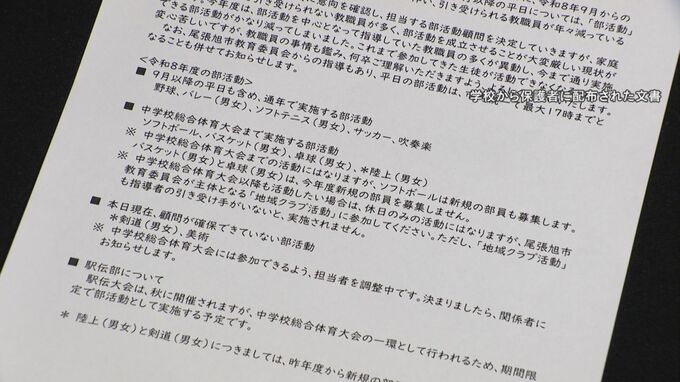 令和8年9月からの
意向を確認し、担当する部活動顧問を決定していますが、家庭
以降の平日については、「部活動
引き受けられる教職員が年々減っている
教職員が多く、部活動を成立させることが大変厳しい現状が
今年度は、部活動を中心となって指導していた教職員の多くが異動し、今まで通り実施
部活動がかなり減ってしまいました。これまで参加してきた生徒が活動できな
変心苦しいですが、教職員の事情も鑑み、何卒ご理解いただきますよう
なお、尾張旭市教育委員会からの指導もあり、平日の部活動は、
最大17時までと
なることも併せてお知らせします。
学校から保護者に配布された文書
<令和8年度の部活動>
■ 9月以降の平日も含め、通年で実施する部活動
野球、バレー(男女)、ソフトテニス(男女)、サッカー、吹奏楽
■ 中学校総合体育大会まで実施する部活動
ソフトボール、バスケット(男女)、卓球(男女)、*陸上(男女)
※ 中学校総合体育大会までの活動にはなりますが、ソフトボールは新規の部員も募集します。
バスケット(男女)と卓球(男女)は、今年度新規の部員を募集しません。
※ 中学校総合体育大会以降も活動したい場合は、休日のみの活動にはなりますが、尾張旭市
教育委員会が主体となる「地域クラブ活動」に参加してください。ただし、「地域クラブ活動」
も指導者の引き受け手がいないと、実施されません。
■ 本日現在、顧問が確保できていない部活動
*剣道(男女)、美術
※ 中学校総合体育大会には参加できるよう、担当者を調整中です。決まりましたら、関係者に
お知らせします。
■ 駅伝部について
駅伝大会は、秋に開催されますが、中学校総合体育大会の一環として行われるため、期間限
定で部活動として実施する予定です。
* 陸上(男女)と剣道(男女)につきましては、昨年度から新規の部